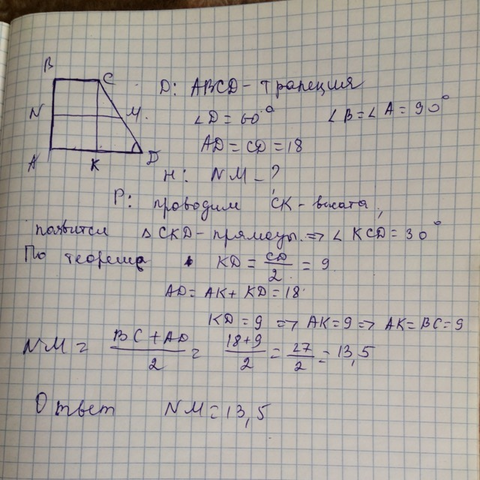 B
C
N
M
A
K
D
D: ABCD - трапеция
∠D = 60° ∠B = ∠A = 90°
AD = CD = 18
н: NM - ?
P: проводим CK - высота,
появится Δ CKD - прямоуг. ⇒ ∠ KCD = 30°
По теореме KD = CD/2 = 9
AD = AK + KD = 18
KD = 9 ⇒ AK = 9 ⇒ AK = BC = 9
NM = BC + AD/2 = 18 + 9/2 = 27/2 = 13,5
Ответ NM = 13,5